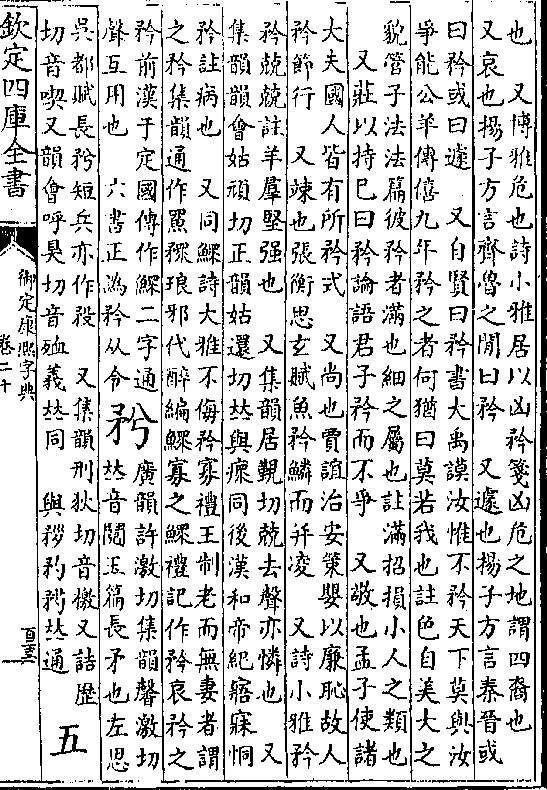 也　又博雅危也詩小雅居以凶矜箋凶危之地謂四裔也
又哀也揚子方言齊魯之閒曰矜　又遽也揚子方言秦晉或
曰矜或曰遽　又自賢曰矜書大禹謨汝惟不矜天下莫與汝
爭能公羊傳僖九年矜之者何猶曰莫若我也註色自美大之
貌管子法法篇彼矜者滿也細之屬也註滿招損小人之類也
又莊以持已曰矜論語君子矜而不爭　又敬也孟子使諸
大夫國人皆有所矜式　又尚也賈誼治安策嬰以廉恥故人
矜節行　又竦也張衡思玄賦魚矜鱗而并凌　又詩小雅矜
矜兢兢註羊羣堅强也　又集韻居覲切兢去聲亦憐也　又
集韻韻會姑頑切正韻姑還切𠀤與瘝同後漢和帝紀寤寐恫
矜註病也　又同鰥詩大雅不侮矜寡禮王制老而無妻者謂
之矜集韻通作𥊽㾌琅邪代醉編鰥寡之鰥禮記作矜哀矜之
矜前漢于定國傳作鰥二字通
聲互用也　六書正譌矜从令
𥍟
廣韻許激切集韻馨激切
𠀤音鬩玉篇長矛也左思
吳都賦長𥍟短兵亦作𥍟　又集韻刑狄切音檄又詰歷
切音喫又韻會呼臭切音殈義𠀤同　與𥎆矜𥍟𠀤通
五
欽定四庫全書
御定康熙字典
卷二十
百三